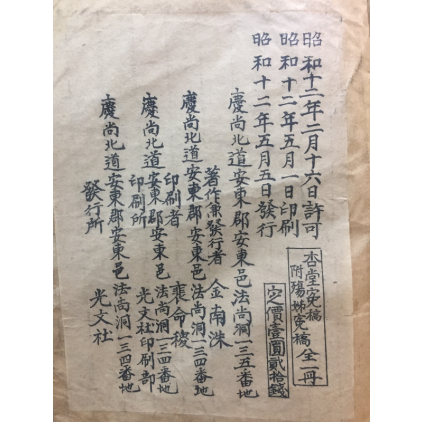 昭和十二年二月十六日許可
昭和十二年五月一日印刷
昭和十二年五月五日發行
杏堂完稿
附殤姊完稿
全一冊
定價壹圓貳拾錢
慶尚北道安東郡安東邑法尚洞一三五番地
著作兼發行者 金南洙
慶尚北道安東郡安東邑法尚洞一三四番地
印刷者 裵命稷
慶尚北道安東郡安東邑法尚洞一三四番地
印刷所 光文社印刷部
慶尚北道安東郡安東邑法尚洞一三四番地
發行所 光文社